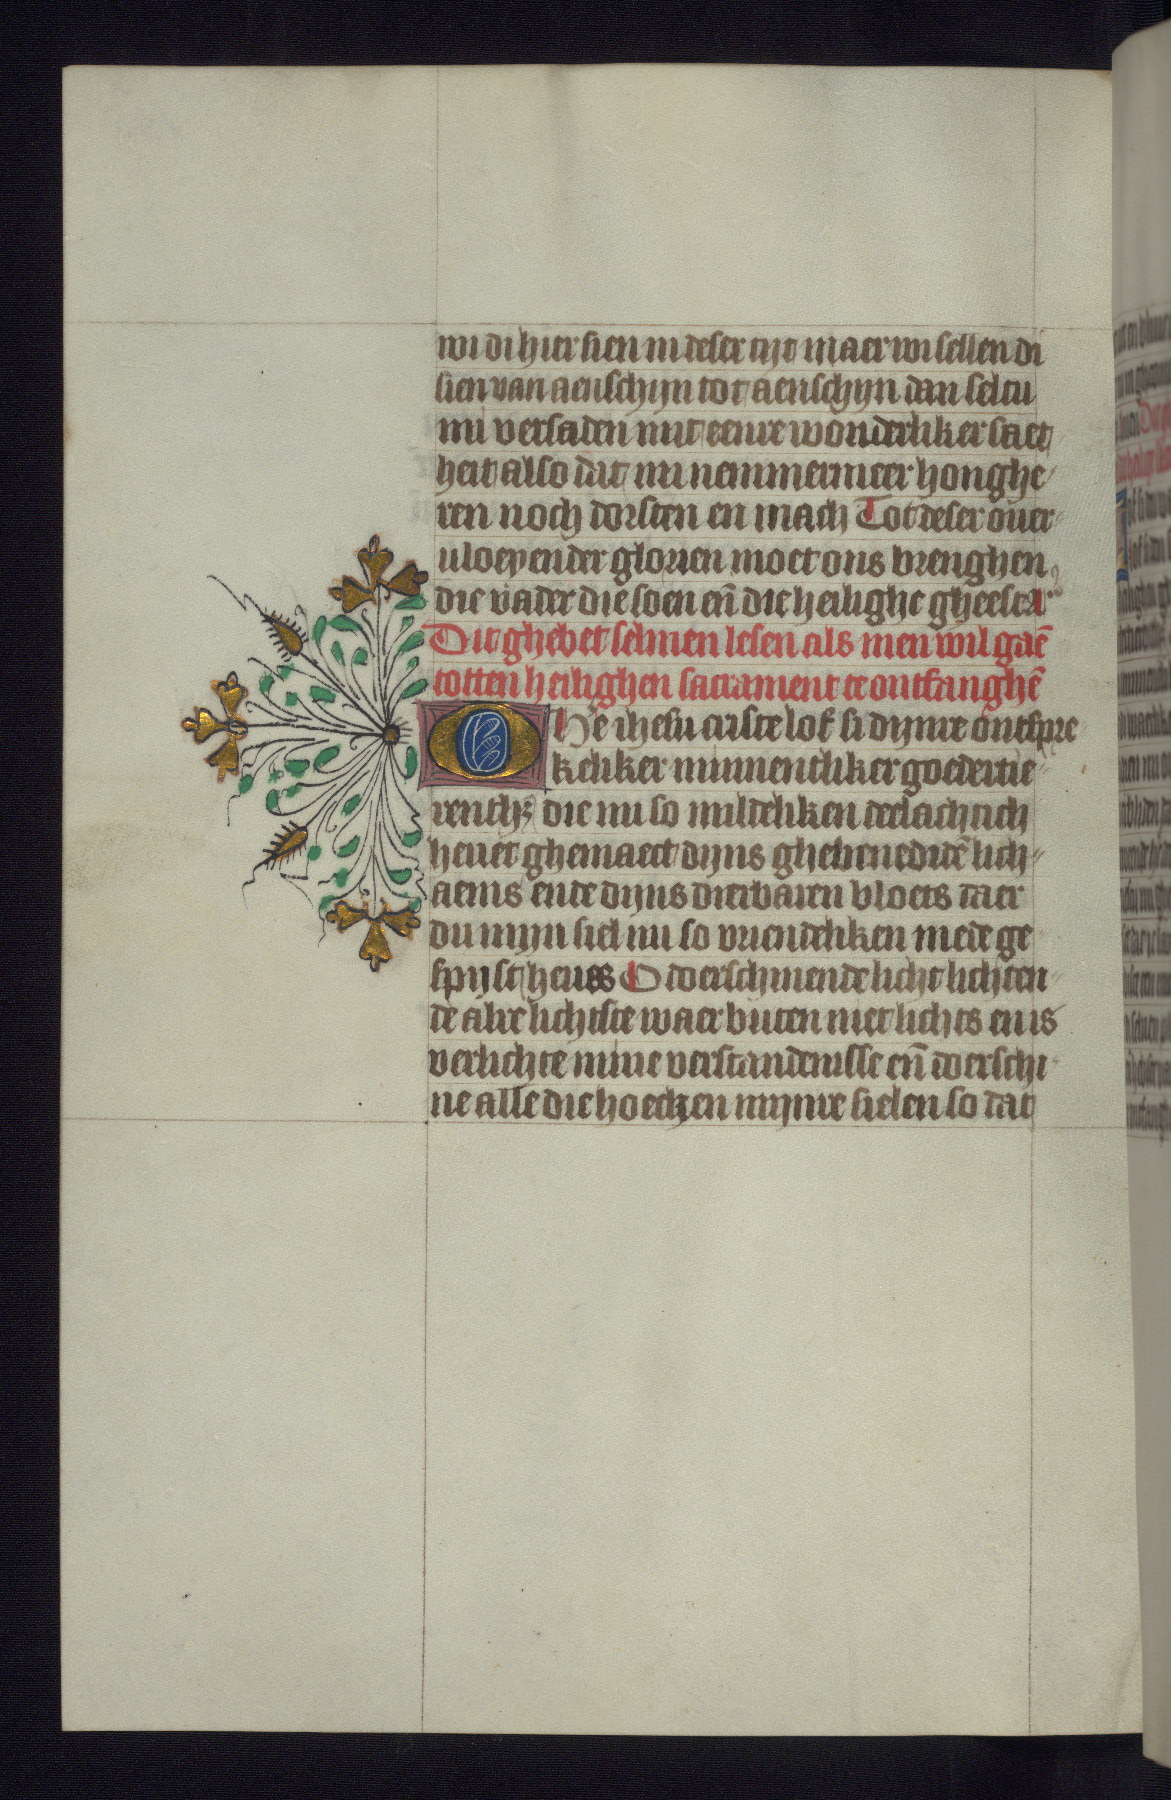 wi di hier sien in deser tijt maer wi sellen di
sien van aenschijn tot aenschijn dan seltu
mi versaden mit eenre wonderliker saet
heit also dat mi nemmermeer honghe-
ren noch dorsten en mach Tot deser over-
vloeyender glorien moet ons brenghen
die vader die soen en̄ die heilighe gheest a
Dit ghebet selmen lesen als men wil gaē
totten heilighen sacrament te ontfanghē
O He ihesu criste lof si dijnre ontspre-
keliker minnentliker goedertie-
renth die mi so mildeliken deelachtich
hevet ghemaect dijns ghebenedidē lich-
aems ende dijns dierbaren bloets daer
du mijn siel nu so vriendeliken mede ge
spijst heves O doerschinende licht lichten-
de alre lichtste waer buten niet lichts en is
verlichte mine verstandenisse en̄ doerschi-
ne alle die hoecken mijnre sielen so dat